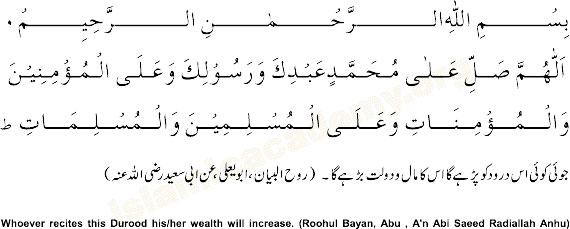 بِسْمِ اللهِ الرَّحْمٰنِ الرَّحِيْمِ ۰
اَللّٰهُمَّ صَلِّ عَلٰى مُحَمَّدٍ عَبْدِكَ وَرَسُوْلِكَ وَعَلَى الْمُؤْمِنِيْنَ
وَالْمُؤْمِنَاتِ وَعَلَى الْمُسْلِمِيْنَ وَالْمُسْلِمَاتِ ط
جو ئی کوئی اس درود کو پڑہے گا اس کا مال و دولت بڑہے گا۔ (روح البیان، ابو یعلی، عن ابی سعید رضی اللہ عنہ)
Whoever recites this Durood his/her wealth will increase. (Roohul Bayan, Abu , A'n Abi Saeed Radiallah Anhu)
islamicacademy.org